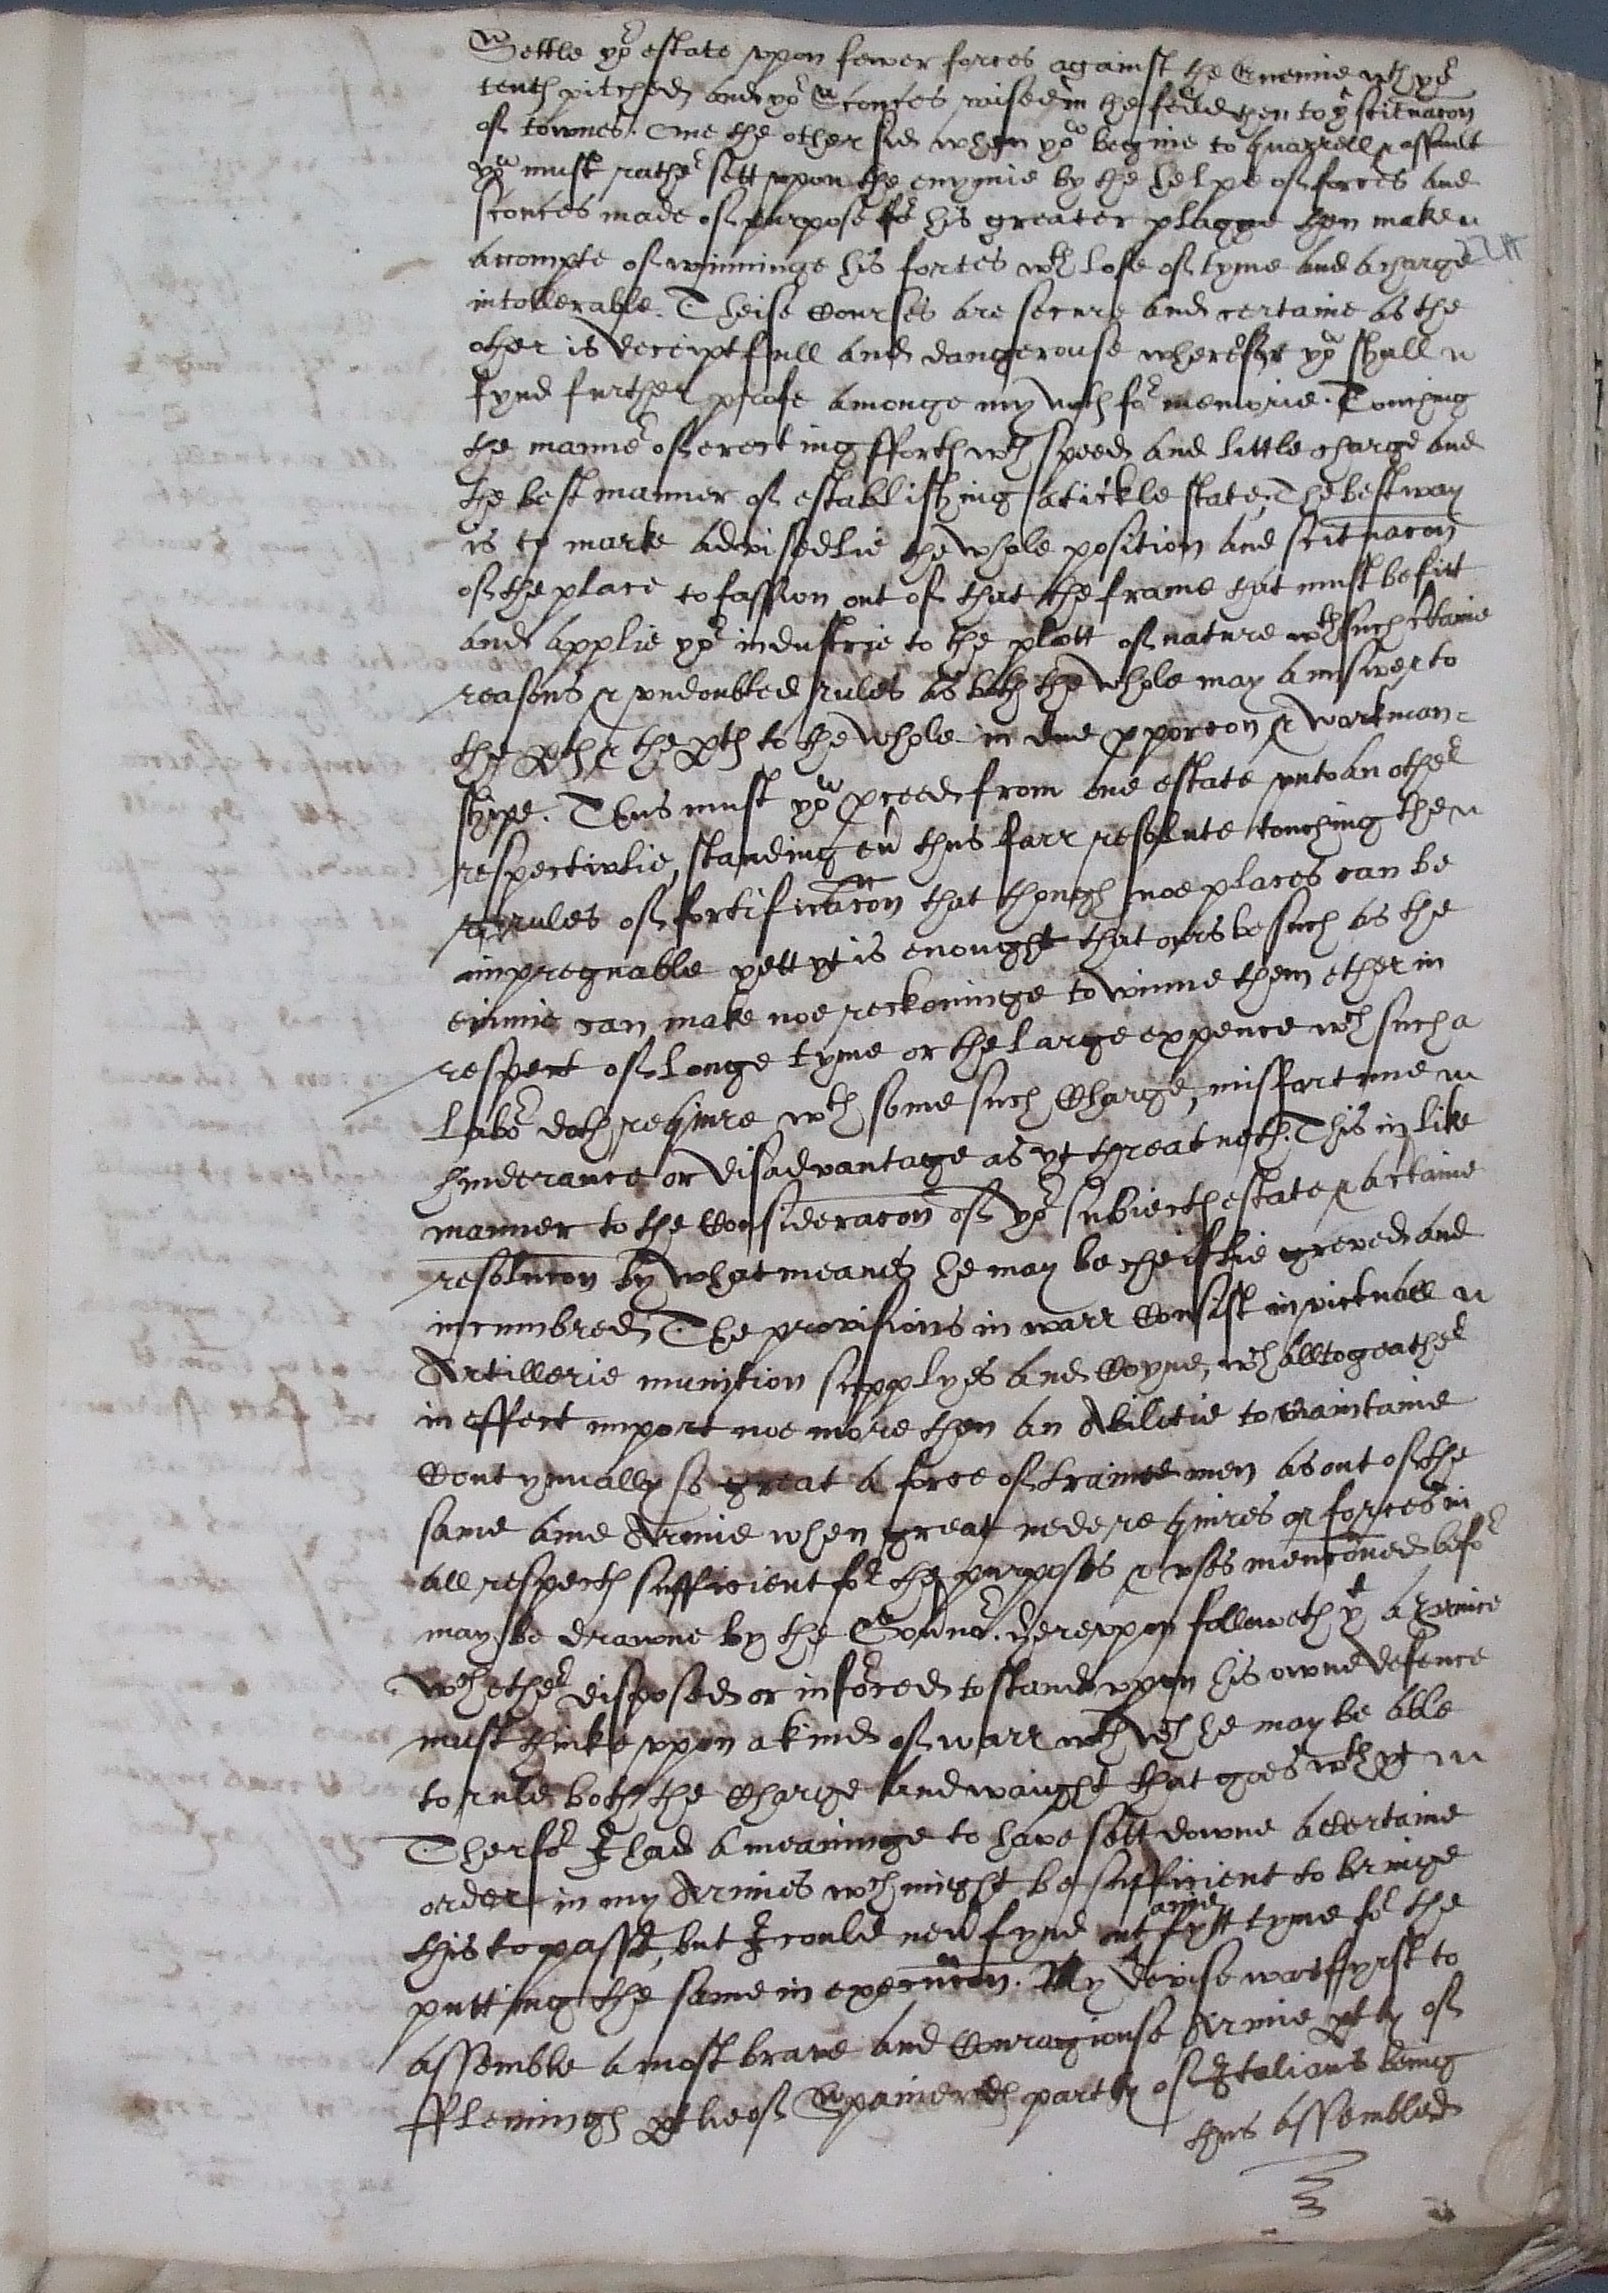 Settle yor estate vpon fewer forces against the Enemie wth yor
tenth pitched and yor Sconces raised in the feild then to ye scituacon
of townes. One the other side when yow beginne to quarrell & assault
yow must rather sett vpon the enymie by the helpe of forces and
sconces made of purpose for his greater plague then make
accompte of winninge his fortes wth losse of tyme and a charge
intollerable. Theise Courses are secure and certaine as the
other is deceiptfull and dangerouse wherefore yow shall
fynd further profe amonge my notes for memorie. Touching
the manner of erecting fforth wth speed and little charge and
the best manner of establishing a tickle state, The best way
is to marke advisedlie the whole position and scituacon
of the place to fassion out of that the frame that must be fitt
and applie yor industrie to the plott of nature wth such certaine
reasons & vndoubted rules as both the whole may answer to
the pts & the pts to the whole in due pporcon & workman=
shipe. Thus must yow pceed from one estate vnto an other
respectivlie, standing eu thus farr resolute touching the
rules of fortificacon that though noe places can be
impregnable yett yt is enought that ours be such as the
enimie can make noe reckoninge to winne them ether in
respect of longe tyme or the large expence wch such a
labor doth require wth some such Charge, missfortune
hinderance or disadvantage as yt threatneth. This in like
manner to the Consideracon of yor subiects estate & a certaine
resolucon by what meanes he may be cheiflie greved and
incumbred. The provisions in warr Consist in victuall
Artillerie munition supplyes and Coyne, wch alltogeather
in effect import noe more then an Abilitie to maintaine
Contynually so great a force of trained men as out of the
same ane Armie when great nede requires of forces in
all respects sufficient for the purposes & vses mencioned before
may be drawne by the Gouernor. Herevpon followeth yt a Prince
wch ether disposed or inforced to stand vpon his owne defence
must thinke vpon a kind of warr wth wch he may be able
to rule both the Charge and waight that goes wth yt
Therfor I had a meaninge to have sett downe a certaine
order in my Armies wch might be sufficient to bringe
this to passe, but I could neu fynd anie fytt tyme for the
putting the same in execucon. My devise was fyrst to
assemble a most brave and Couragiouse Armie ptly of
Fflemings ptlie of Spaniards partly of Italians being
thus assembled